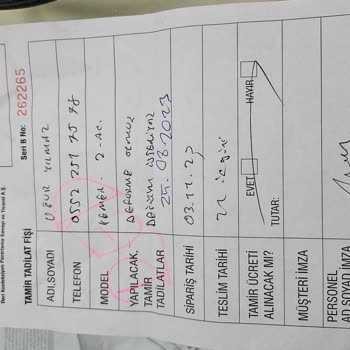 Deri Konfeksiyon Pazarlama Sanayi ve Ticaret A.Ş.
TAMİR TADİLAT FİŞİ
Seri B No: 262265
ADI,SOYADI UĞUR YILMAZ
TELEFON
MODEL KEMER - 2-AC.
YAPILACAK, TAMİR TADİLATLAR DEFORME OLMUŞ
DEĞİŞİM İSTENİYOR
25.03.2023
SİPARİŞ TARİHİ 03.11.23
TESLİM TARİHİ 21 iş günü
TAMİR ÜCRETİ ALINACAK MI? EVET HAYIR
TUTAR:
MÜŞTERİ İMZA
PERSONEL
AD SOYAD İMZA